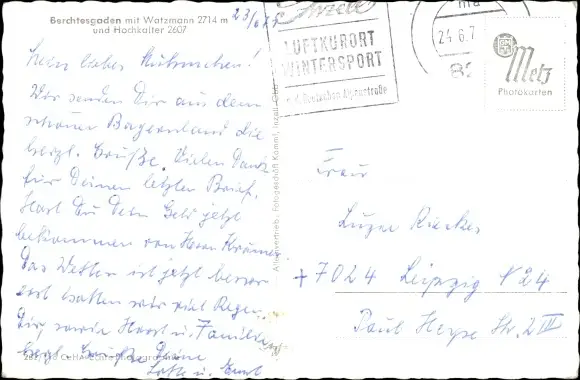 Berchtesgaden mit Watzmann 2714 m
und Hochkalter 2607
23/6 75
Mein liebes
Wir senden Dir aus dem
schönen Bayernland die
herzl. Grüße. Vielen Dank
für Deinen letzten Brief.
Hast Du Dein Geld jetzt
bekommen von Herrn
Das Wetter ist jetzt besser
erst hatten wir viel Regen.
Dir sowie Horst u. Familie
herzl. Grüße Deine
Lotte u.
Inzell
LUFTKURORT
WINTERSPORT
Deutschen Alpenstraße
24.6.7
82
Metz
Photokarten
Frau
Luzie
+ 7024 Leipzig N 24
Paul Heyse Str. 2 III